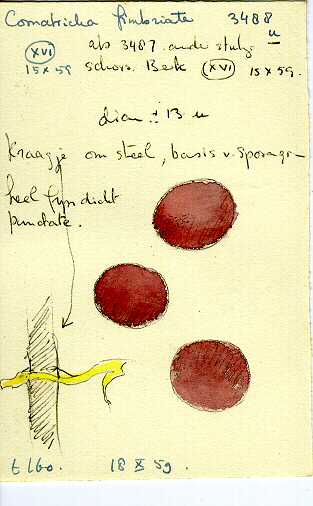 Comatricha fimbriata 3488
u
XVI als 3487. oude stulp
15 x 59 schors. Berk XVI 15 x 59.
diam ± 13 u
Kraagje om steel, basis v. sporang
heel fijn dicht
punctate.
t 160. 18 X 59.